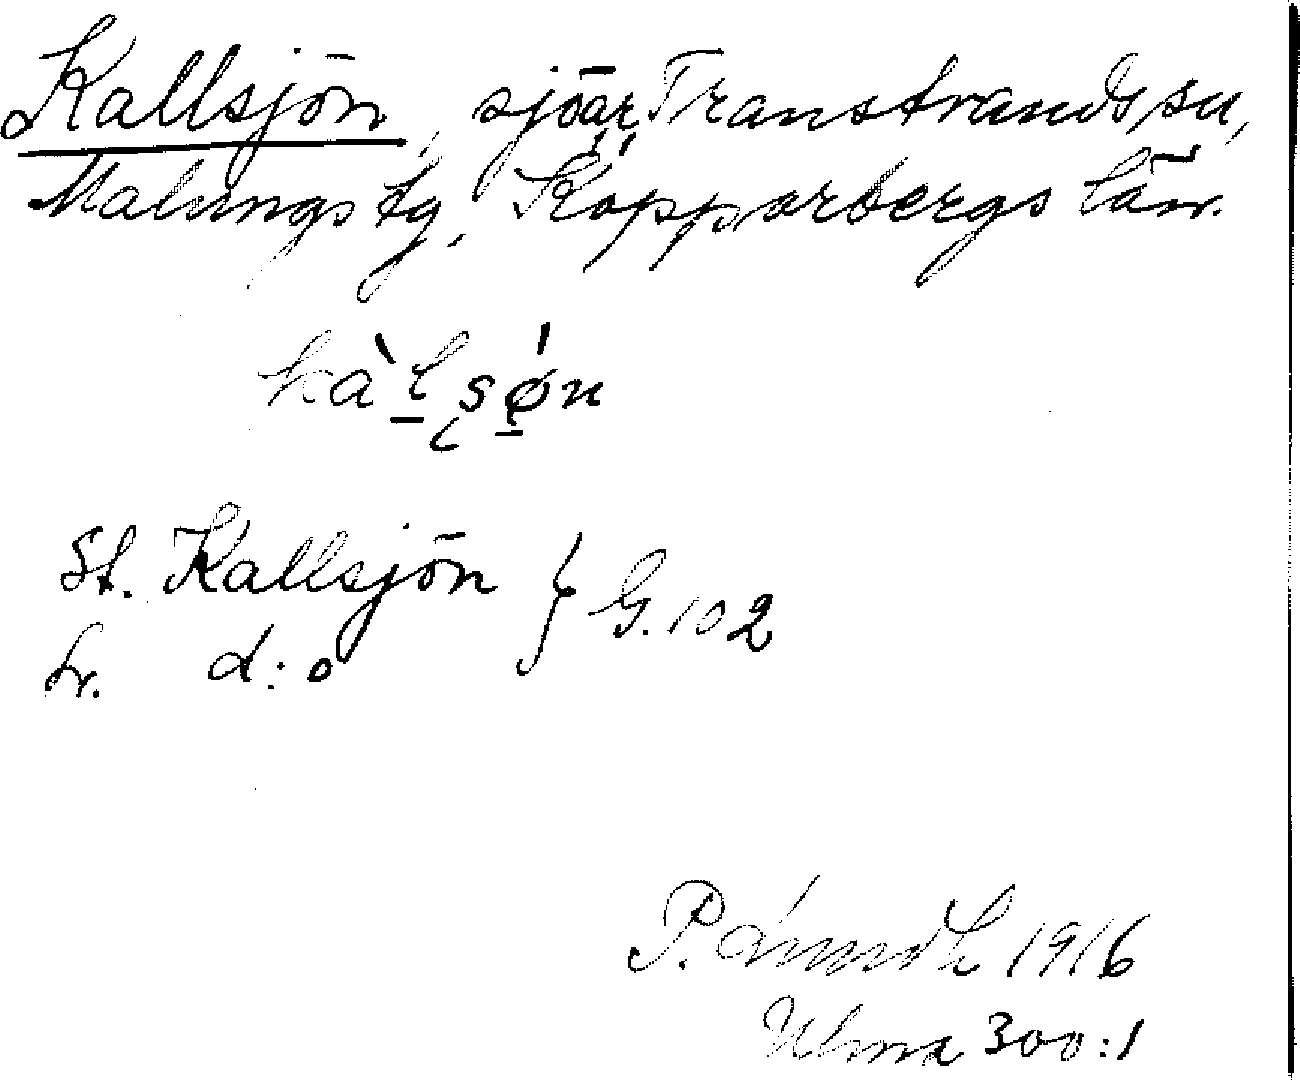 Kallsjön, sjöar, Transtrands sn,
Malungs tg, Kopparbergs län.
kàl̲sǿ̲n
St. Kallsjön } G. 102
Lr. d:o
P. 1916
Ulma 300:1